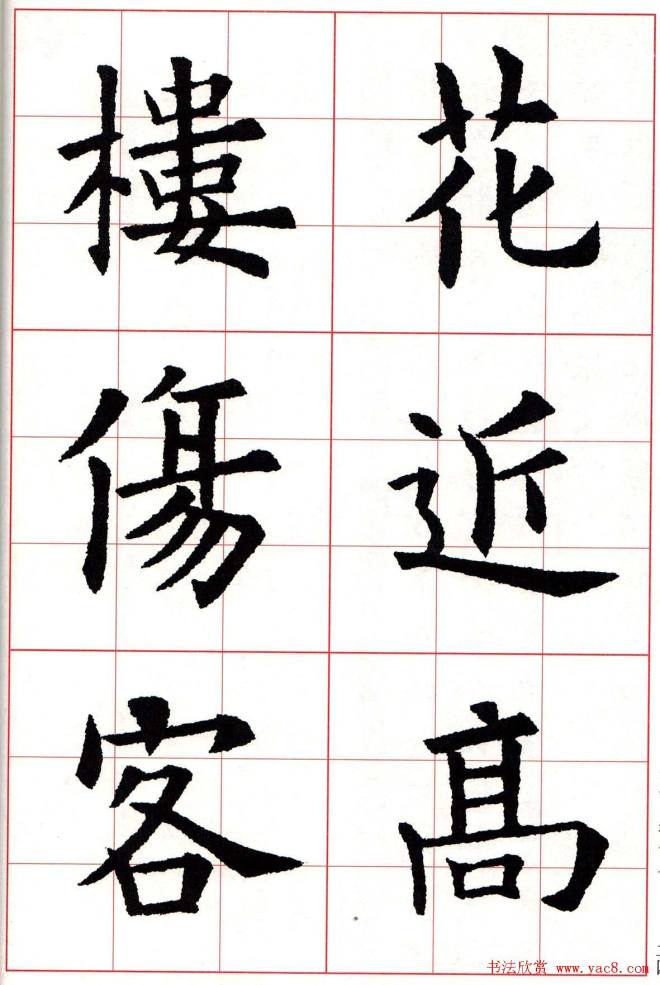 花近髙
樓傷客
书法欣赏 www.yac8.com